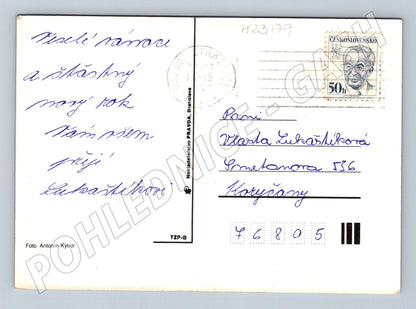 M23179
Veselé vánoce
a šťastný
nový rok
Vám všem
přejí
Lukaštíkovi
Foto Antonín Kyndr
TZP-B
Nakladatelstvo PRAVDA, Bratislava
ČESKOSLOVENSKO
50h
Paní
Vlasta Lukaštíková
Smetanova 536
Koryčany
76805
POHLEDNICE - GASH